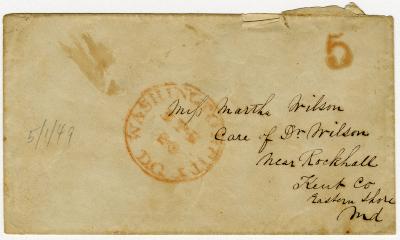 5
Miss Martha Wilson
Care of Dr Wilson
Near Rockhall
Kent Co
Eastern Shore
Md
5/1/49
WASHINGTON CITY D.C.